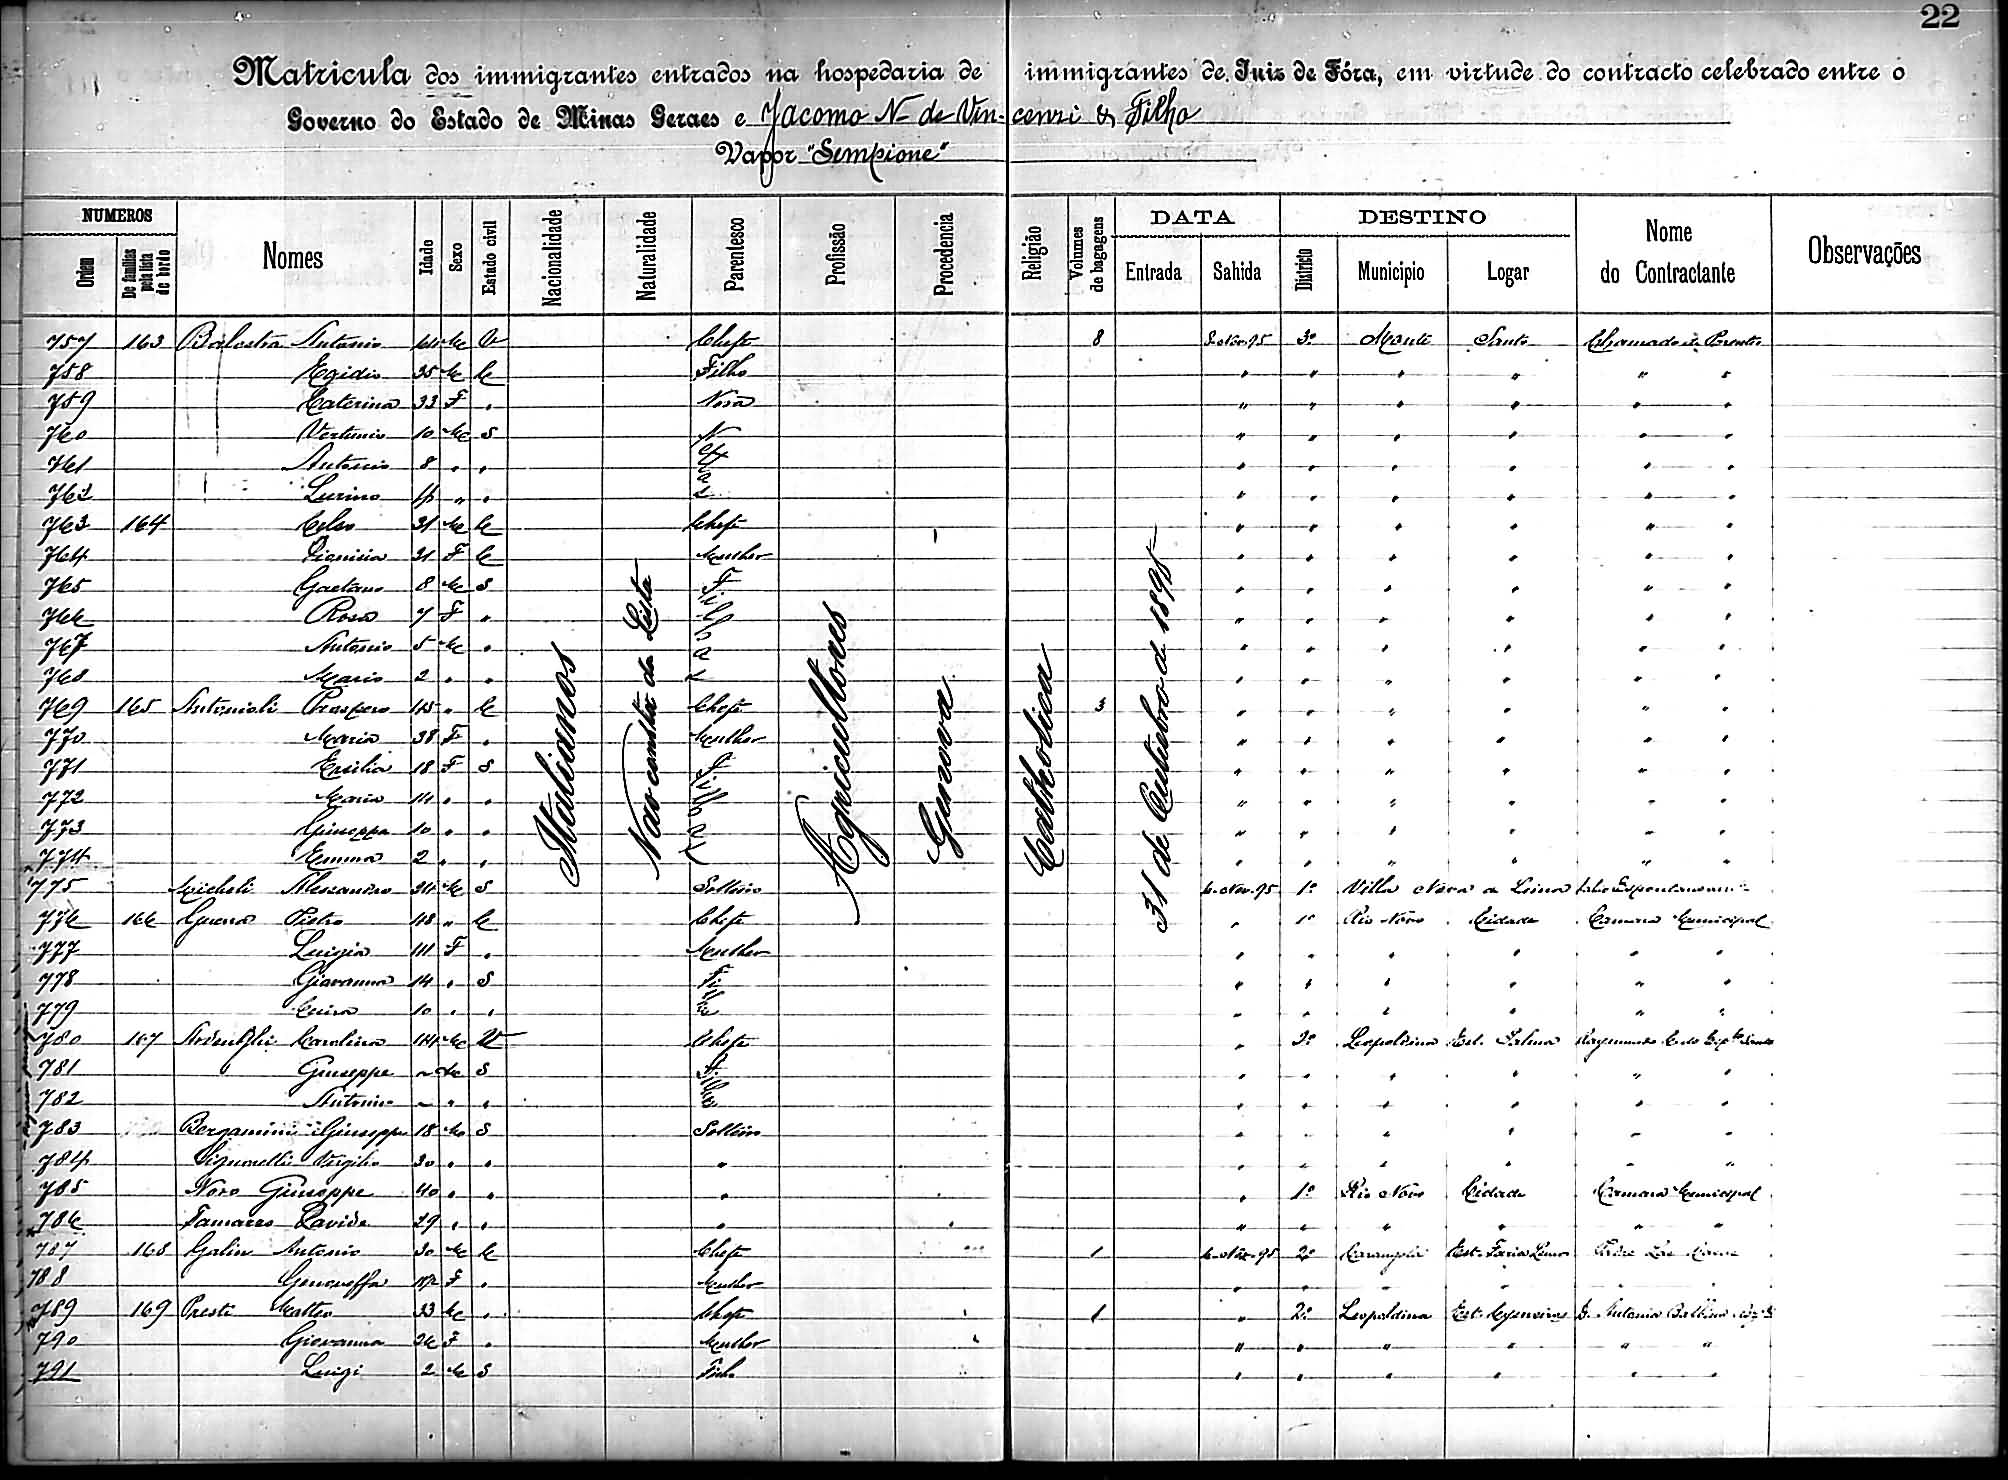 22
Matricula dos immigrantes entrados na hospedaria de immigrantes de Juiz de Fóra, em virtude do contracto celebrado entre o
Governo do Estado de Minas Geraes e Jacomo N. de Vincenzi & Filho
Vapor "Sempione"
NUMEROS DATA DESTINO
Ordem De familias pela lista de bordo Nomes Idade Sexo Estado civil Nacionalidade Naturalidade Parentesco Profissão Procedencia Religião Volumes de bagagens Entrada Sahida Districto Municipio Logar Nome do Contractante Observações
Italianos
Não consta da Lista
Agricultores
Genova
Catholica
31 de Outubro de 1895
757 163 Balestra Antonio M V Chefe 8 3º Monte Santo Chamado de Parentes
758 Egidio 35 M C Filho " " " " " "
759 Caterina 33 F " Nora " " " " " "
760 10 M S Netos " " " " " "
761 Antonio 8 " " " " " " " "
762 " " " " " " " "
763 164 Celso 31 M C Chefe " " " " " "
764 31 F C Mulher " " " " " "
765 Gaetano 8 M S Filhos " " " " " "
766 Rosa 7 F " " " " " " "
767 Antonio 5 M " " " " " " "
768 Mario 2 " " " " " " " "
769 165 Antonioli Prospero 45 " C Chefe 3 " " " " " "
770 Maria 38 F " Mulher " " " " " "
771 Ersilia 18 F S Filhas " " " " " "
772 Maria 14 " " " " " " " "
773 Giuseppa 10 " " " " " " " "
774 Emma 2 " " " " " " " "
775 Micheli Alessandro 34 M S Solteiro 6-Nov-95 1º Villa Nova de Lima
776 166 Guerra Pietro 48 " C Chefe " 1º Rio Novo Cidade Camara Municipal
777 Luigia 41 F " Mulher " " " " " "
778 Giovanna 14 " S Filha " " " " " "
779 10 " " " " " " " "
780 167 Carolina 44 M V Chefe " 2º Leopoldina Est.
781 Giuseppe " M S Filho " " " " " "
782 Antonio " " " " " " " " "
783 Bergamini Giuseppe 18 M S Solteiro " " " " " "
784 Signorelli Virgilio 30 " " " " " " " " "
785 Novo Giuseppe 40 " " " " 1º Rio Novo Cidade Camara Municipal
786 Davide 29 " " " " " " " " "
787 168 Galin Antonio 30 M C Chefe 1 6-Nov-95 2º Carangola Est. Faria Lemos
788 Genoveffa F " Mulher " " " " " "
789 169 Presti Matteo 33 M " Chefe 1 " 2º Leopoldina Est. D. Antonia
790 Giovanna 26 F " Mulher " " " " " "
791 Luigi 2 M S Filho " " " " " "